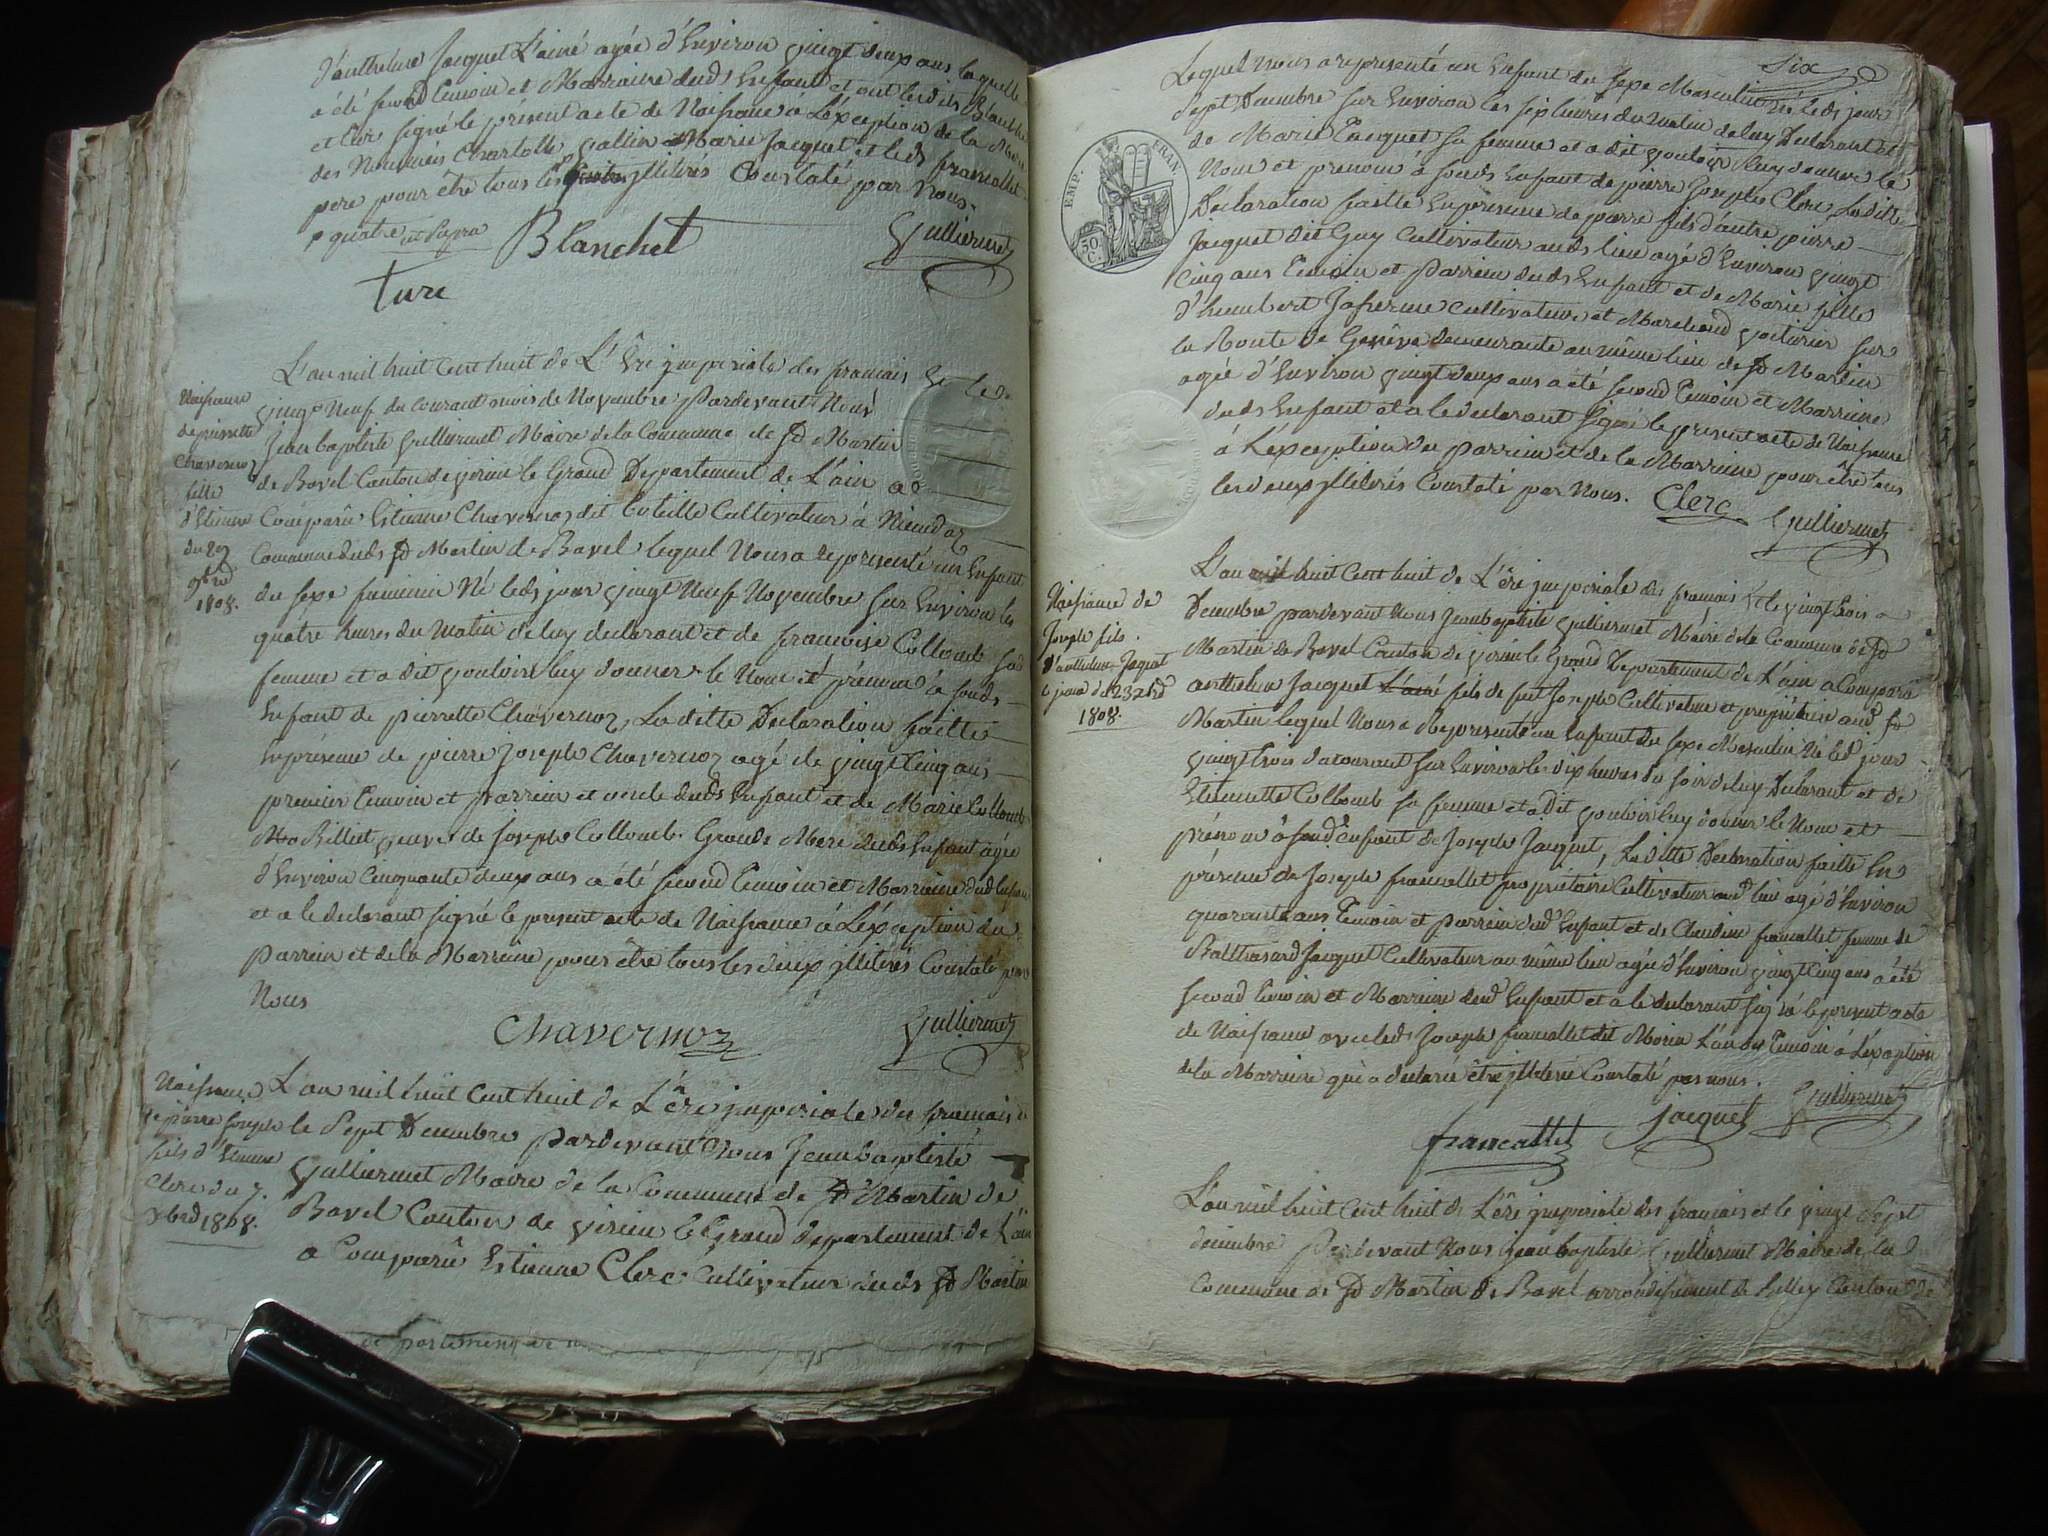 d'anthelme Jacquet L'ainé agée d'Environ vingt deux ans laquelle
a été second temoin et Marraine dudt Enfant et ont lesdits Blanchet
et turc signé le présent acte de Naissance à L'exception de la Mere
des Nommés Charlotte gallin Marie Jacquet et ledt francallet
pere pour être tous les illiterés Constaté par Nous.
quatre
Blanchet
Gulliermet
turc
L'an mil huit Cent huit de L'Ere imperiale des francais Et le
Naissance
de pierrette
Chavernoz
fille
d'Etienne
du 29
9bre
1808.
vingt Neuf du Courant mois de Novembre Pardevant Nous
Jean baptiste Gulliermet Maire de la Commune de St Martin
de Bavel Canton de virieu le Grand Departement de L'ain a
Comparu Etienne Chavernoz dit Cultivateur à
Commune dudt St Martin de Bavel lequel Nous a representé un Enfant
du sexe feminin Né ledt jour vingt Neuf Novembre sur Environ les
quatre heures du Matin de luy declarant et de francoise Collomb sa
femme et a dit vouloir luy donner le Nom et prénom à sondt
Enfant de pierrette Chavernoz, La ditte Declaration faitte
En présence de pierre joseph Chavernoz agé de vingt Cinq ans
premier temoin et parrein et oncle dudt Enfant et de Marie Collomb
Billiet veuve de Joseph Collomb. Grande Mere dudt Enfant agée
d'Environ Cinquante deux ans a été second temoin et Marraine dudt Enfant
et a le declarant signé le present acte de Naissance à L'exception du
Parrein et de la Marraine pour être tous les deux illiterés Constaté par
Nous
Chavernoz
Gulliermet
Naissance
de pierre Joseph
fils d'Etienne
Clerc du 7.
Xbre 1808.
L'an mil huit Cent huit de L'ére imperiale des francais
le Sept Decembre Pardevant Nous Jean baptiste
Gulliermet Maire de la Commune de St Martin de
Bavel Canton de virieu le Grand departement de L'ain
a Comparu Etienne Clerc Cultivateur dudt St Martin
departement de
Six
Lequel nous a representé un Enfant du sexe Masculin Né ledt jour
Sept Decembre sur Environ les six heures du matin de luy Declarant et
de Marie Jacquet sa femme et a dit vouloir luy donner le
Nom et prenom à sondt Enfant de pierre Joseph Clerc La ditte
Declaration faitte En presence de pierre fils d'autre pierre
Jacquet dit Guy Cultivateur audt lieu agé d'Environ vingt
Cinq ans temoin et Parrein dudt Enfant et de Marie fille
d'humbert Cultivateur et Marchand voiturier sur
la Route de Genève demeurante au même lieu de St Martin
agée d'Environ vingt deux ans a été second temoin et Marraine
dudt Enfant et a le declarant signé le present acte de Naissance
à L'exception du parrein et de la Marraine pour être tous
les deux illiterés Constaté par Nous.
Clerc
Gulliermet
EMP. FRAN.
50 C.
Naissance de
Joseph fils
d'anthelme Jaquet
1808.
L'an mil huit Cent huit de L'ére imperiale des francais Et le vingt trois
Decembre pardevant Nous Jean baptiste Gulliermet Maire de la Commune de St
Martin de Bavel Canton de virieu le Grand Departement de L'ain a Comparu
anthelme Jacquet L'ainé fils de feu Joseph Cultivateur et propriétaire audt St
Martin lequel Nous a Representé un Enfant du sexe Masculin Né ledt jour
vingt trois du courant sur Environ les dix heures du soir de luy Declarant et de
Etiennette Collomb sa femme et a dit vouloir luy donner le Nom et
prénom à sondt enfant de Joseph Jacquet, La ditte Declaration faitte En
présence de Joseph francallet propriétaire Cultivateur audt lieu agé d'Environ
quarante ans temoin et parrein dudt Enfant et de Claudine francallet femme de
Balthasard Jacquet Cultivateur au même lieu agée d'Environ vingt Cinq ans a été
second temoin et Marraine dudt Enfant et a le declarant signé le present acte
de Naissance avec ledt Joseph francallet dit Morin L'autre temoin à L'exception
de la Marraine qui a declaré être illiterée Constaté par nous.
Gulliermet
jacquet
francallet
L'an mil huit Cent huit de L'ére imperiale des francais et le vingt Sept
decembre Pardevant Nous Jean baptiste Gulliermet Maire de la
Commune de St Martin de Bavel arrondissement de Belley Canton de